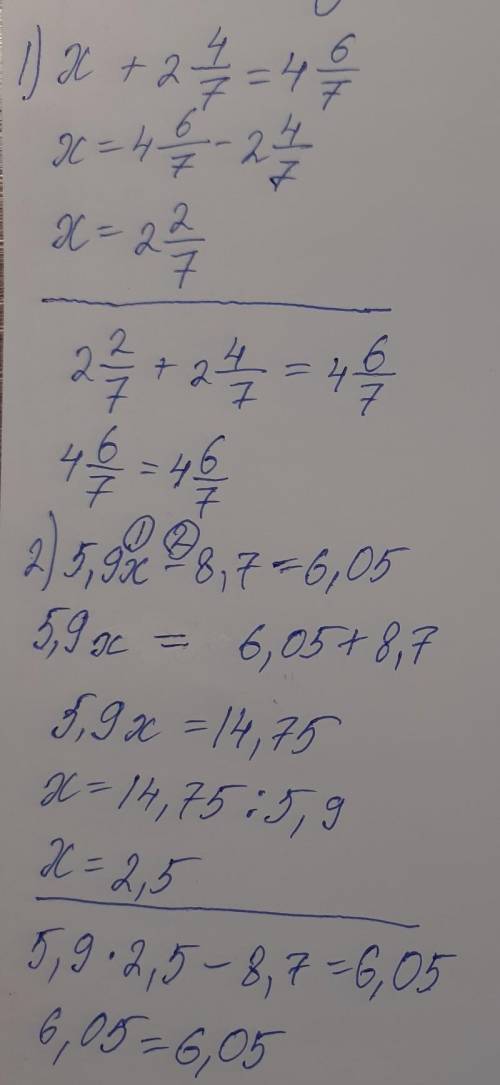 1) x + 2 4/7 = 4 6/7
x = 4 6/7 - 2 4/7
x = 2 2/7
2 2/7 + 2 4/7 = 4 6/7
4 6/7 = 4 6/7
① ②
2) 5,9x - 8,7 = 6,05
5,9x = 6,05 + 8,7
5,9x = 14,75
x = 14,75 : 5,9
x = 2,5
5,9 · 2,5 - 8,7 = 6,05
6,05 = 6,05